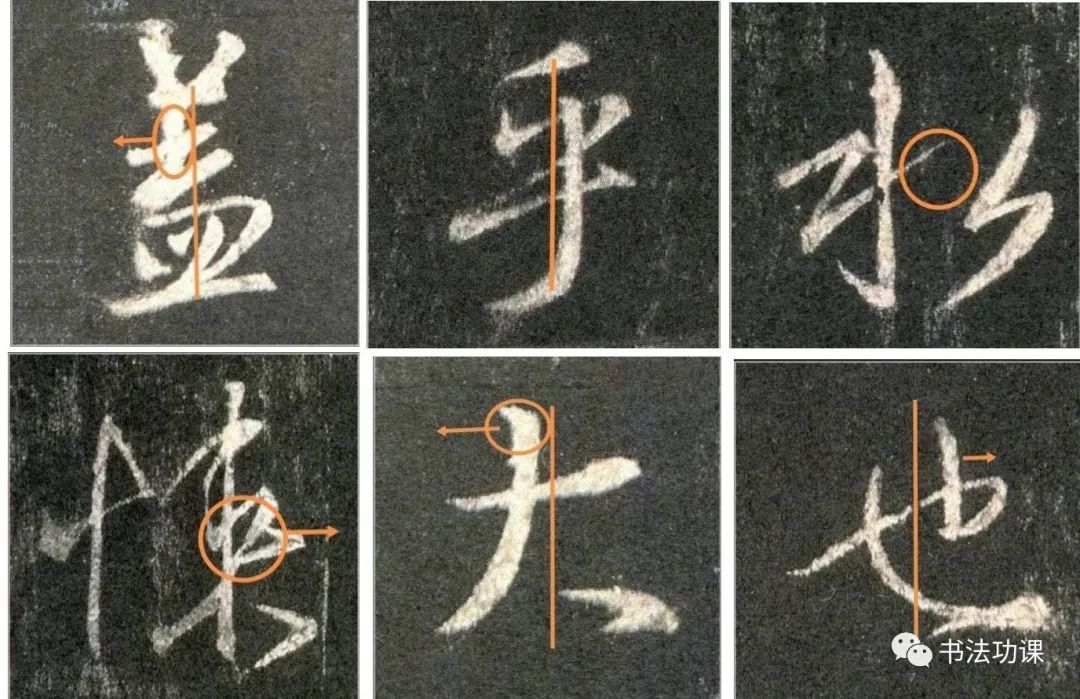 盖 乎 水
大 也
书法功课